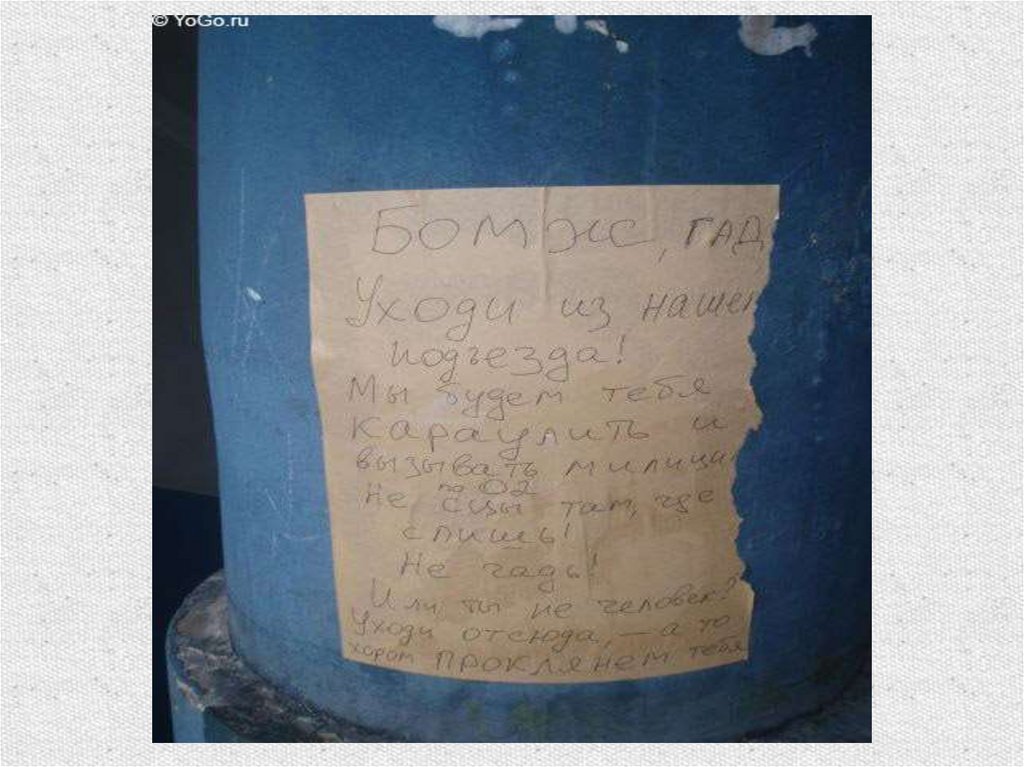 © YoGo.ru
Бомж, ГАД
Уходи из нашег
подъезда!
Мы будем тебя
караулить и
вызывать милици
по 02
Не сцы там, где
спишь!
Не гадь!
Или ты не человек?
Уходи отсюда, — а то
хором ПРОКЛЯНЕМ тебя